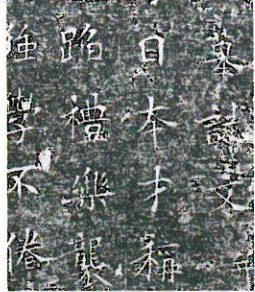 墓誌文并
日本才稱
蹈禮樂襲
強學不倦